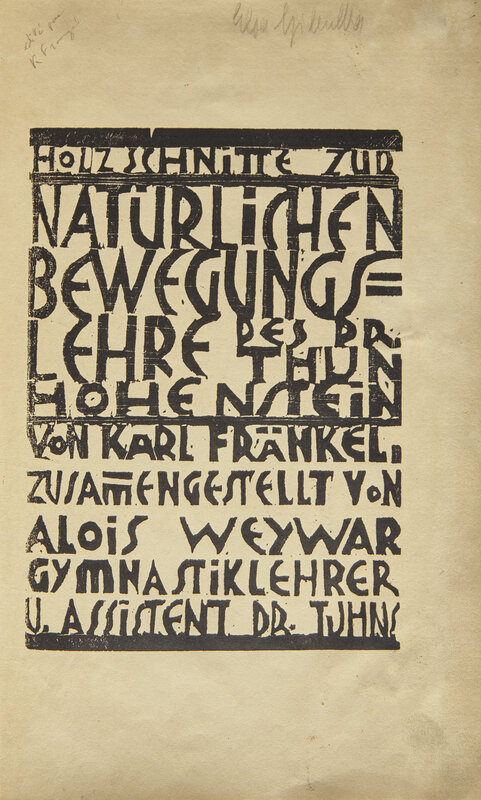 HOLZSCHNITTE ZUR
NATÜRLICHEN
BEWEGUNGS=
LEHRE DES DR.
THUN
HOHENSTEIN
VON KARL FRÄNKEL,
ZUSAM̅ENGESTELLT VON
ALOIS WEYWAR
GYMNASTIKLEHRER
U. ASSISTENT DR. TUHNS